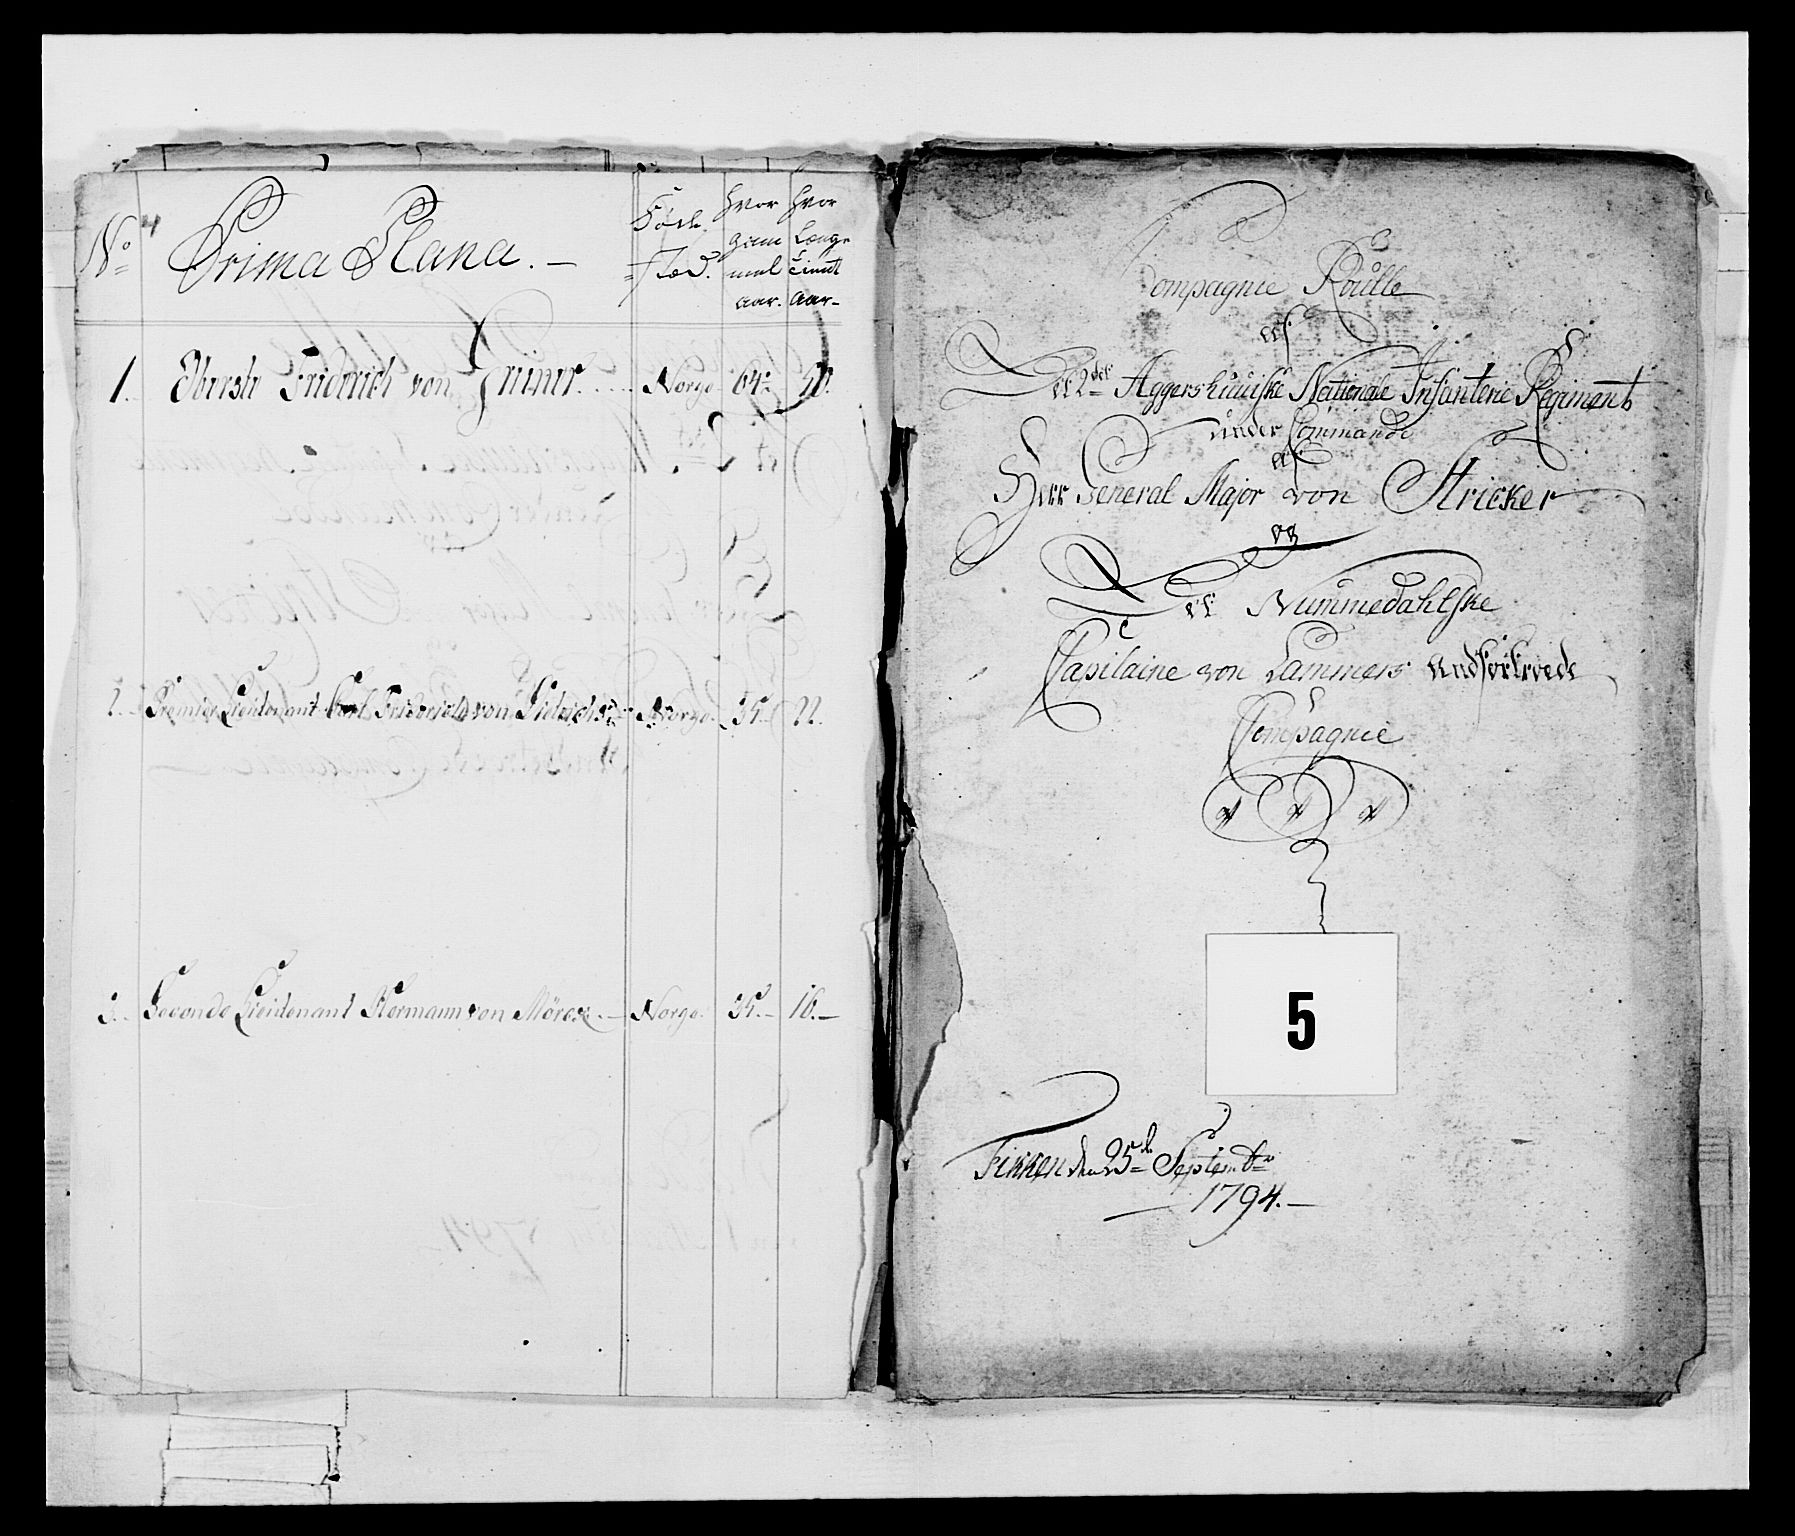 No
Prima Plana. —
Føde-
stæd.
Hvor
gam
mel
aar.
Hvor
Længe
tient
Aar —
1. Oberste Friderich von Grüner. Norge 64. 50.
2. Premier Lieutenant Carl Friderich von Norge. 35. 22.
3. Seconde Lieutenant Hermann von Mörck. — Norge. 35. — 16. —
Compagnie Roulle
af
Det 2det Aggershuuiske Nationale Infanterie Regiment
under Commando
af
Herr General Major von Stricker
og
Det Nummedahlske
Capitaine von Lammers Andførtroede
Compagnie
5
den 25de Septembr
1794. —